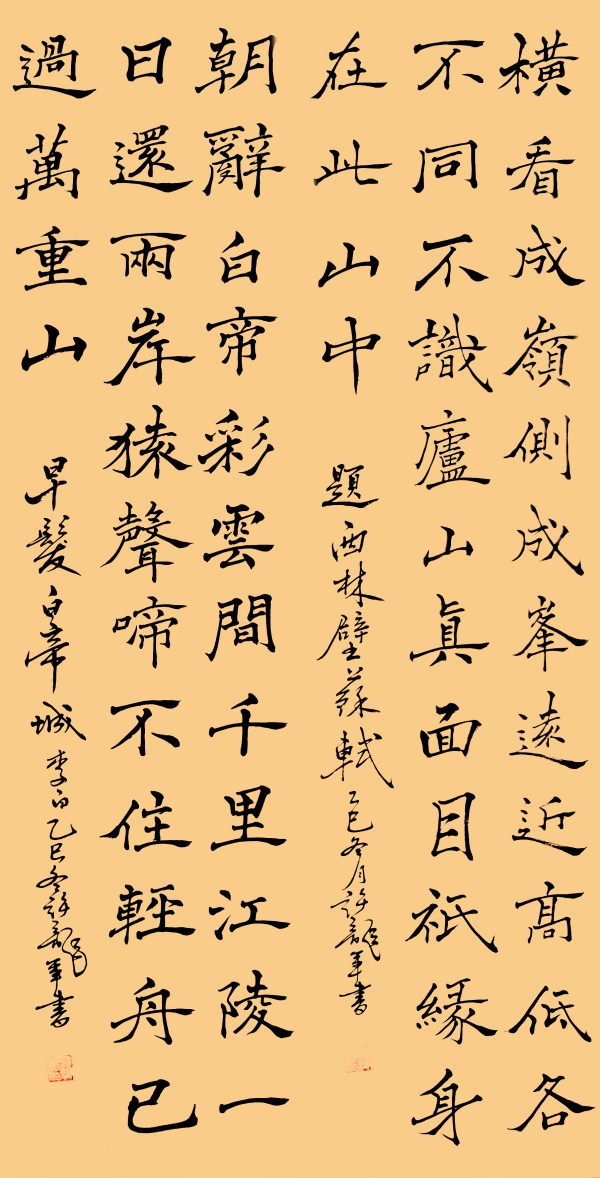 橫看成嶺側成峯遠近髙低各
不同不識廬山眞面目祇緣身
在此山中
題西林壁蘇軾乙巳冬月許龍軍書
朝辭白帝彩雲間千里江陵一
日還兩岸猿聲啼不住輕舟已
過萬重山
早髮白帝城李白乙巳冬許龍軍書